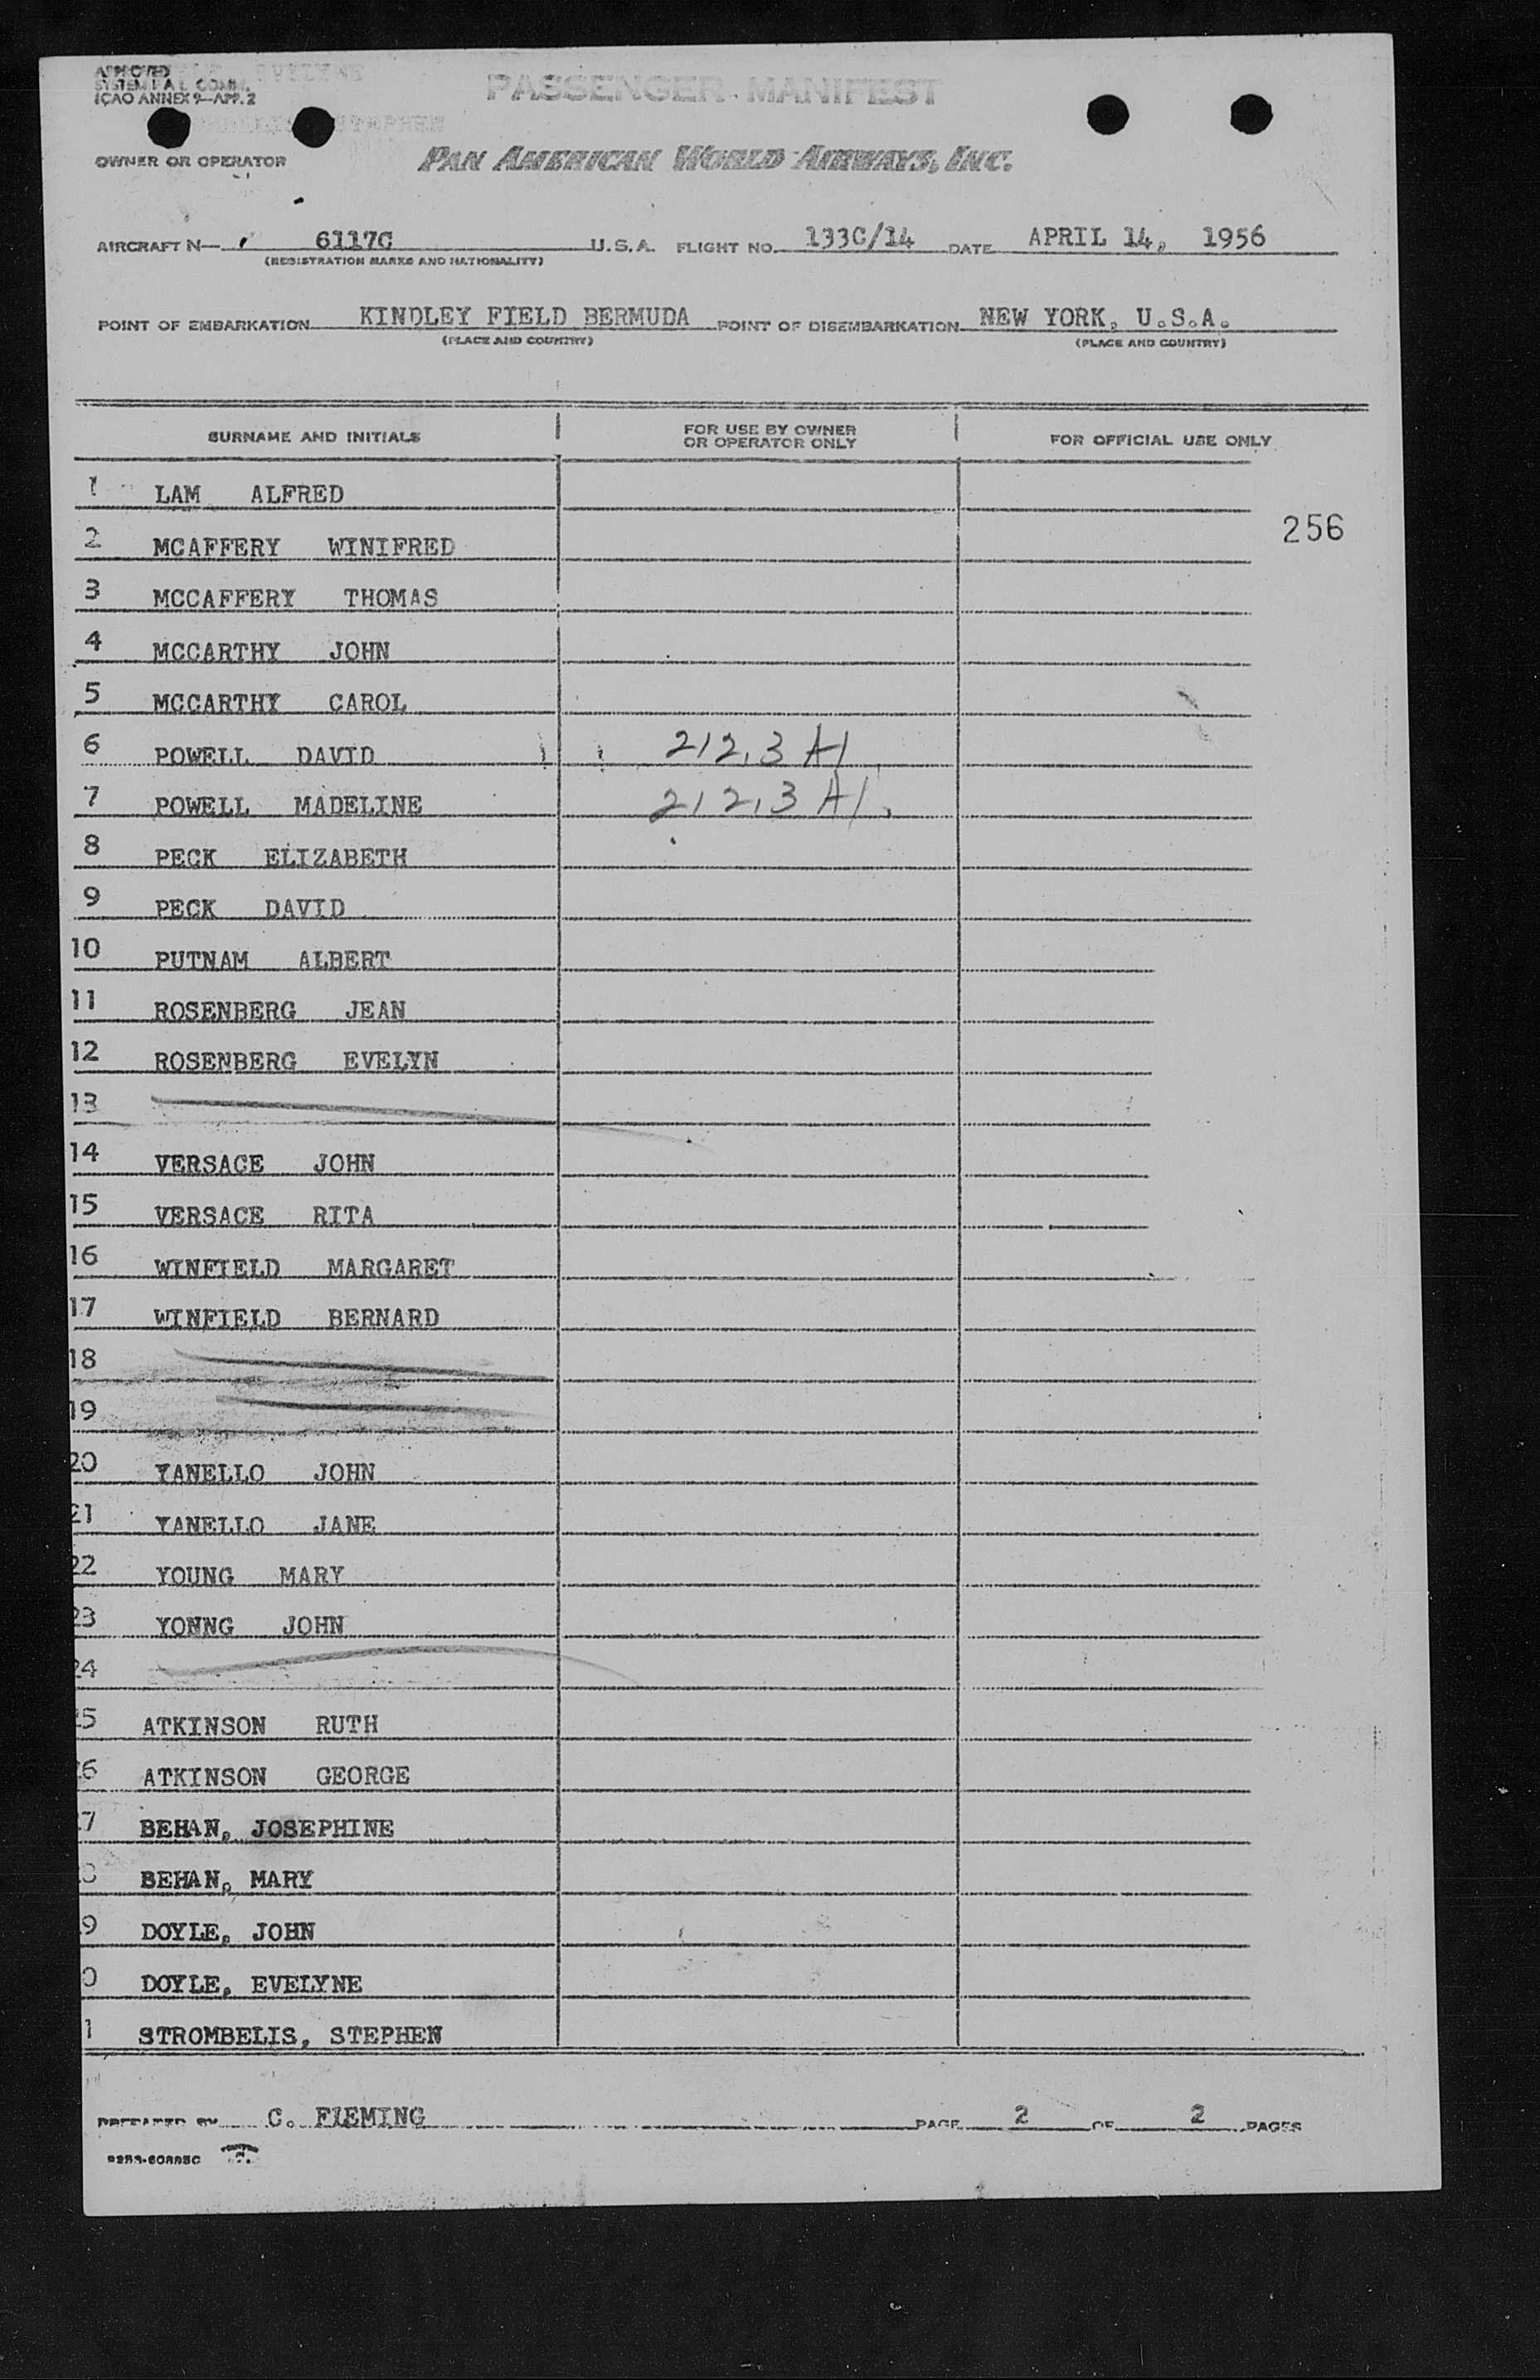 APPROVED
SYSTEM I A L COMM.
ICAO ANNEX 9—APP. 2
PASSENGER MANIFEST
OWNER OR OPERATOR PAN AMERICAN WORLD AIRWAYS, INC.
AIRCRAFT N— 6117C U.S.A. FLIGHT NO. 133C/14 DATE APRIL 14, 1956
(REGISTRATION MARKS AND NATIONALITY)
POINT OF EMBARKATION KINDLEY FIELD BERMUDA POINT OF DISEMBARKATION NEW YORK, U.S.A.
(PLACE AND COUNTRY) (PLACE AND COUNTRY)
SURNAME AND INITIALS FOR USE BY OWNER OR OPERATOR ONLY FOR OFFICIAL USE ONLY
1 LAM ALFRED
256
2 MCAFFERY WINIFRED
3 MCCAFFERY THOMAS
4 MCCARTHY JOHN
5 MCCARTHY CAROL
6 POWELL DAVID 212.3 A1
7 POWELL MADELINE 212.3 A1
8 PECK ELIZABETH
9 PECK DAVID
10 PUTNAM ALBERT
11 ROSENBERG JEAN
12 ROSENBERG EVELYN
13
14 VERSACE JOHN
15 VERSACE RITA
16 WINFIELD MARGARET
17 WINFIELD BERNARD
18
19
20 YANELLO JOHN
21 YANELLO JANE
22 YOUNG MARY
23 YONNG JOHN
24
5 ATKINSON RUTH
6 ATKINSON GEORGE
7 BEHAN, JOSEPHINE
8 BEHAN, MARY
9 DOYLE, JOHN
0 DOYLE, EVELYNE
1 STROMBELIS, STEPHEN
PREPARED BY C. FLEMING PAGE 2 OF 2 PAGES